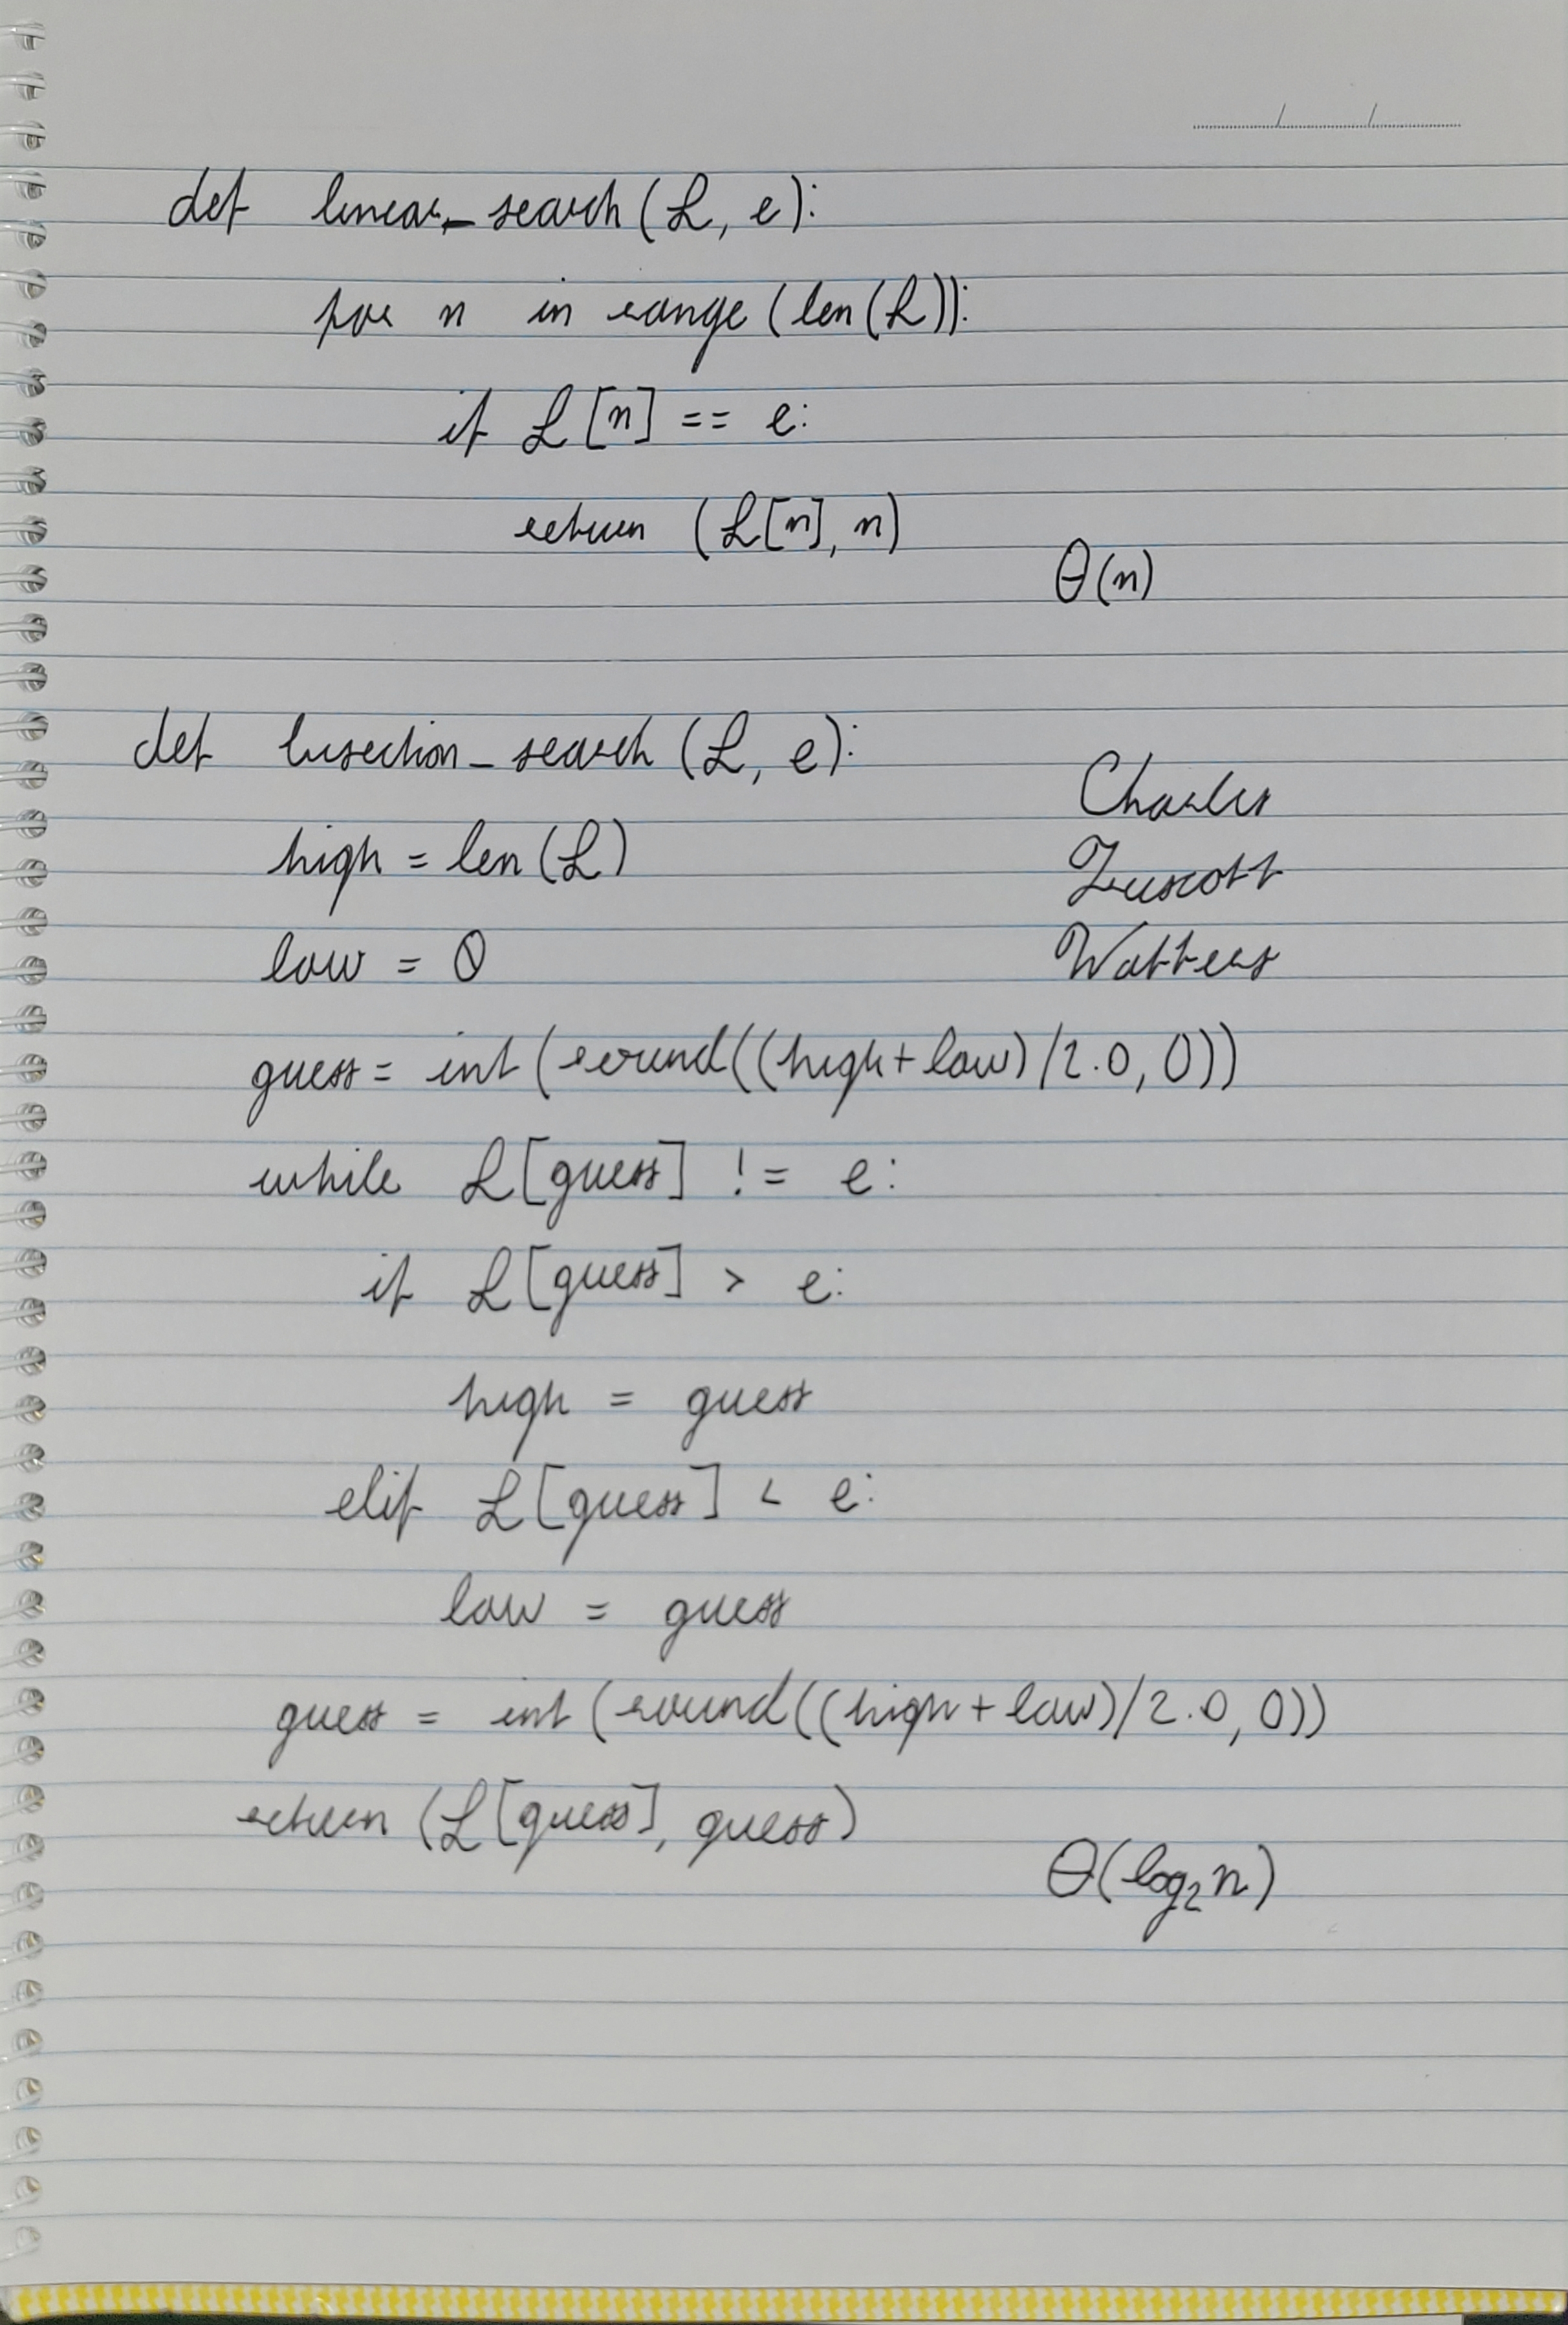 def linear_search(L, e):
for n in range(len(L)):
if L[n] == e:
return (L[n], n)
θ(n)
def bisection_search(L, e):
high = len(L)
low = 0
guess = int(round((high+low)/2.0, 0))
while L[guess] != e:
if L[guess] > e:
high = guess
elif L[guess] < e:
low = guess
guess = int(round((high+low)/2.0, 0))
return (L[guess], guess)
θ(log₂n)
Charles
Truscott
Watters